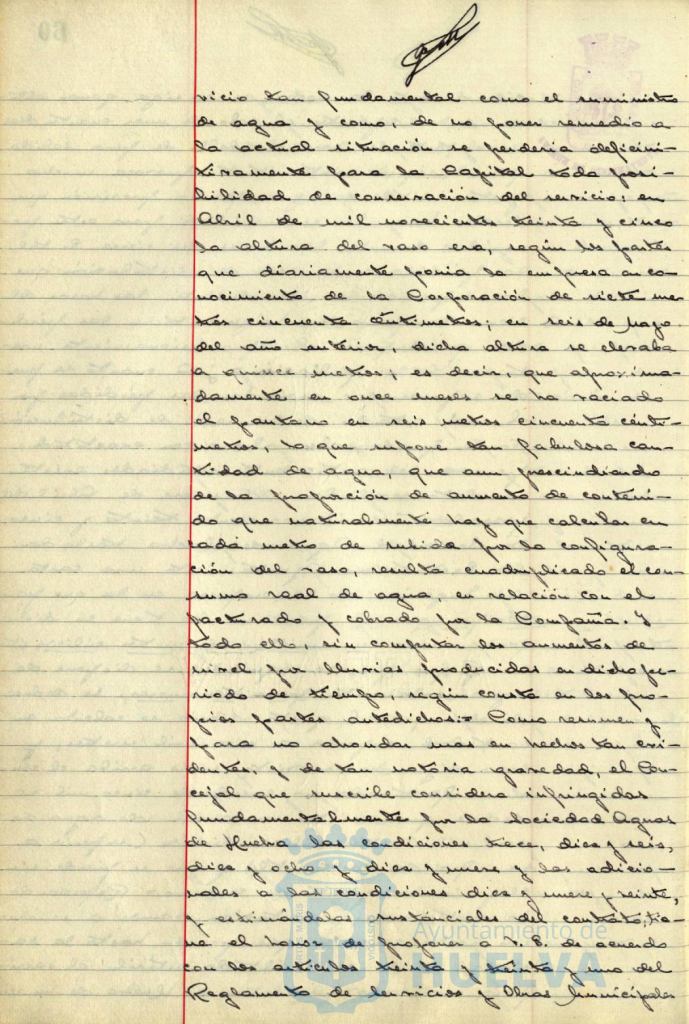 vicio tan fundamental como el suministro
de agua y como, de no poner remedio a
la actual situación se perderia deficini-
tivamente para la Capital toda posi-
bilidad de conservación del servicio: en
Abril de mil novecientos treinta y cinco
la altura del vaso era, según los partes
que diariamente ponia la empresa en co-
nocimiento de la Corporación de siete me-
tros cincuenta centimetros; en seis de Mayo
del año anterior, dicha altura se elevaba
a quince metros; es decir, que aproxima-
damente en once meses se ha vaciado
el pantano en seis metros cincuenta centi-
metros, lo que supone tan fabulosa can-
tidad de agua, que aun prescindiendo
de la proporción de aumento de conteni-
do que naturalmente hay que calcular en
cada metro de subida por la configura-
ción del vaso, resulta cuadruplicado el con-
sumo real de agua, en relación con el
facturado y cobrado por la Compañia. Y
todo ello, sin computar los aumentos de
nivel por lluvias producidas en dicho pe-
riodo de tiempo, según consta en los pro-
pios partes antedichos:= Como resumen y
para no ahondar mas en hechos tan evi-
dentes, y de tan notoria gravedad, el Con-
cejal que suscribe considera infringidas
fundamentalmente por la Sociedad Aguas
de Huelva las condiciones trece, diez y seis,
diez y ocho y diez y nueve y las adicio-
nales a las condiciones diez y nueve y veinte,
y estimándolas sustanciales del contrato, tie-
ne el honor de proponer a V. E. de acuerdo
con los articulos treinta y treinta y uno del
Reglamento de Servicios y Obras Municipales
Ayuntamiento de
HUELVA